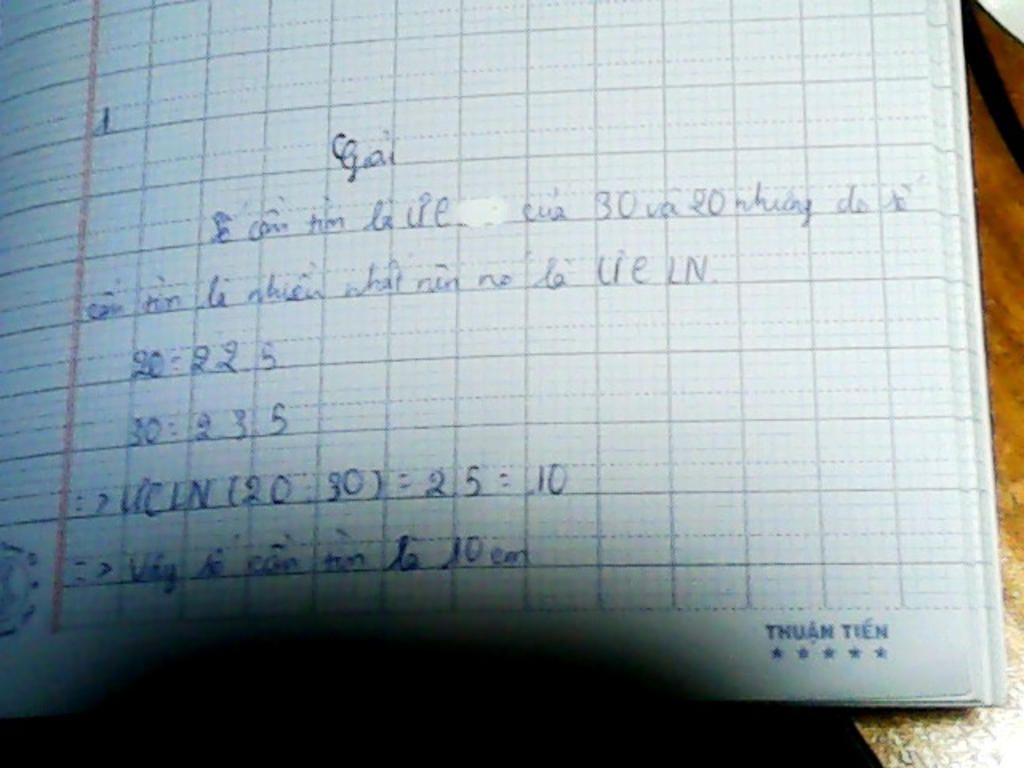 1
Giải
Số cần tìm là ƯC của 30 và 20 nhưng do số
cần tìm là nhiều nhất nên nó là ƯCLN.
20 = 2.2.5
30 = 2.3.5
=> ƯCLN (20; 30) = 2.5 = 10
=> Vậy số cần tìm là 10 cm
THUẬN TIẾN